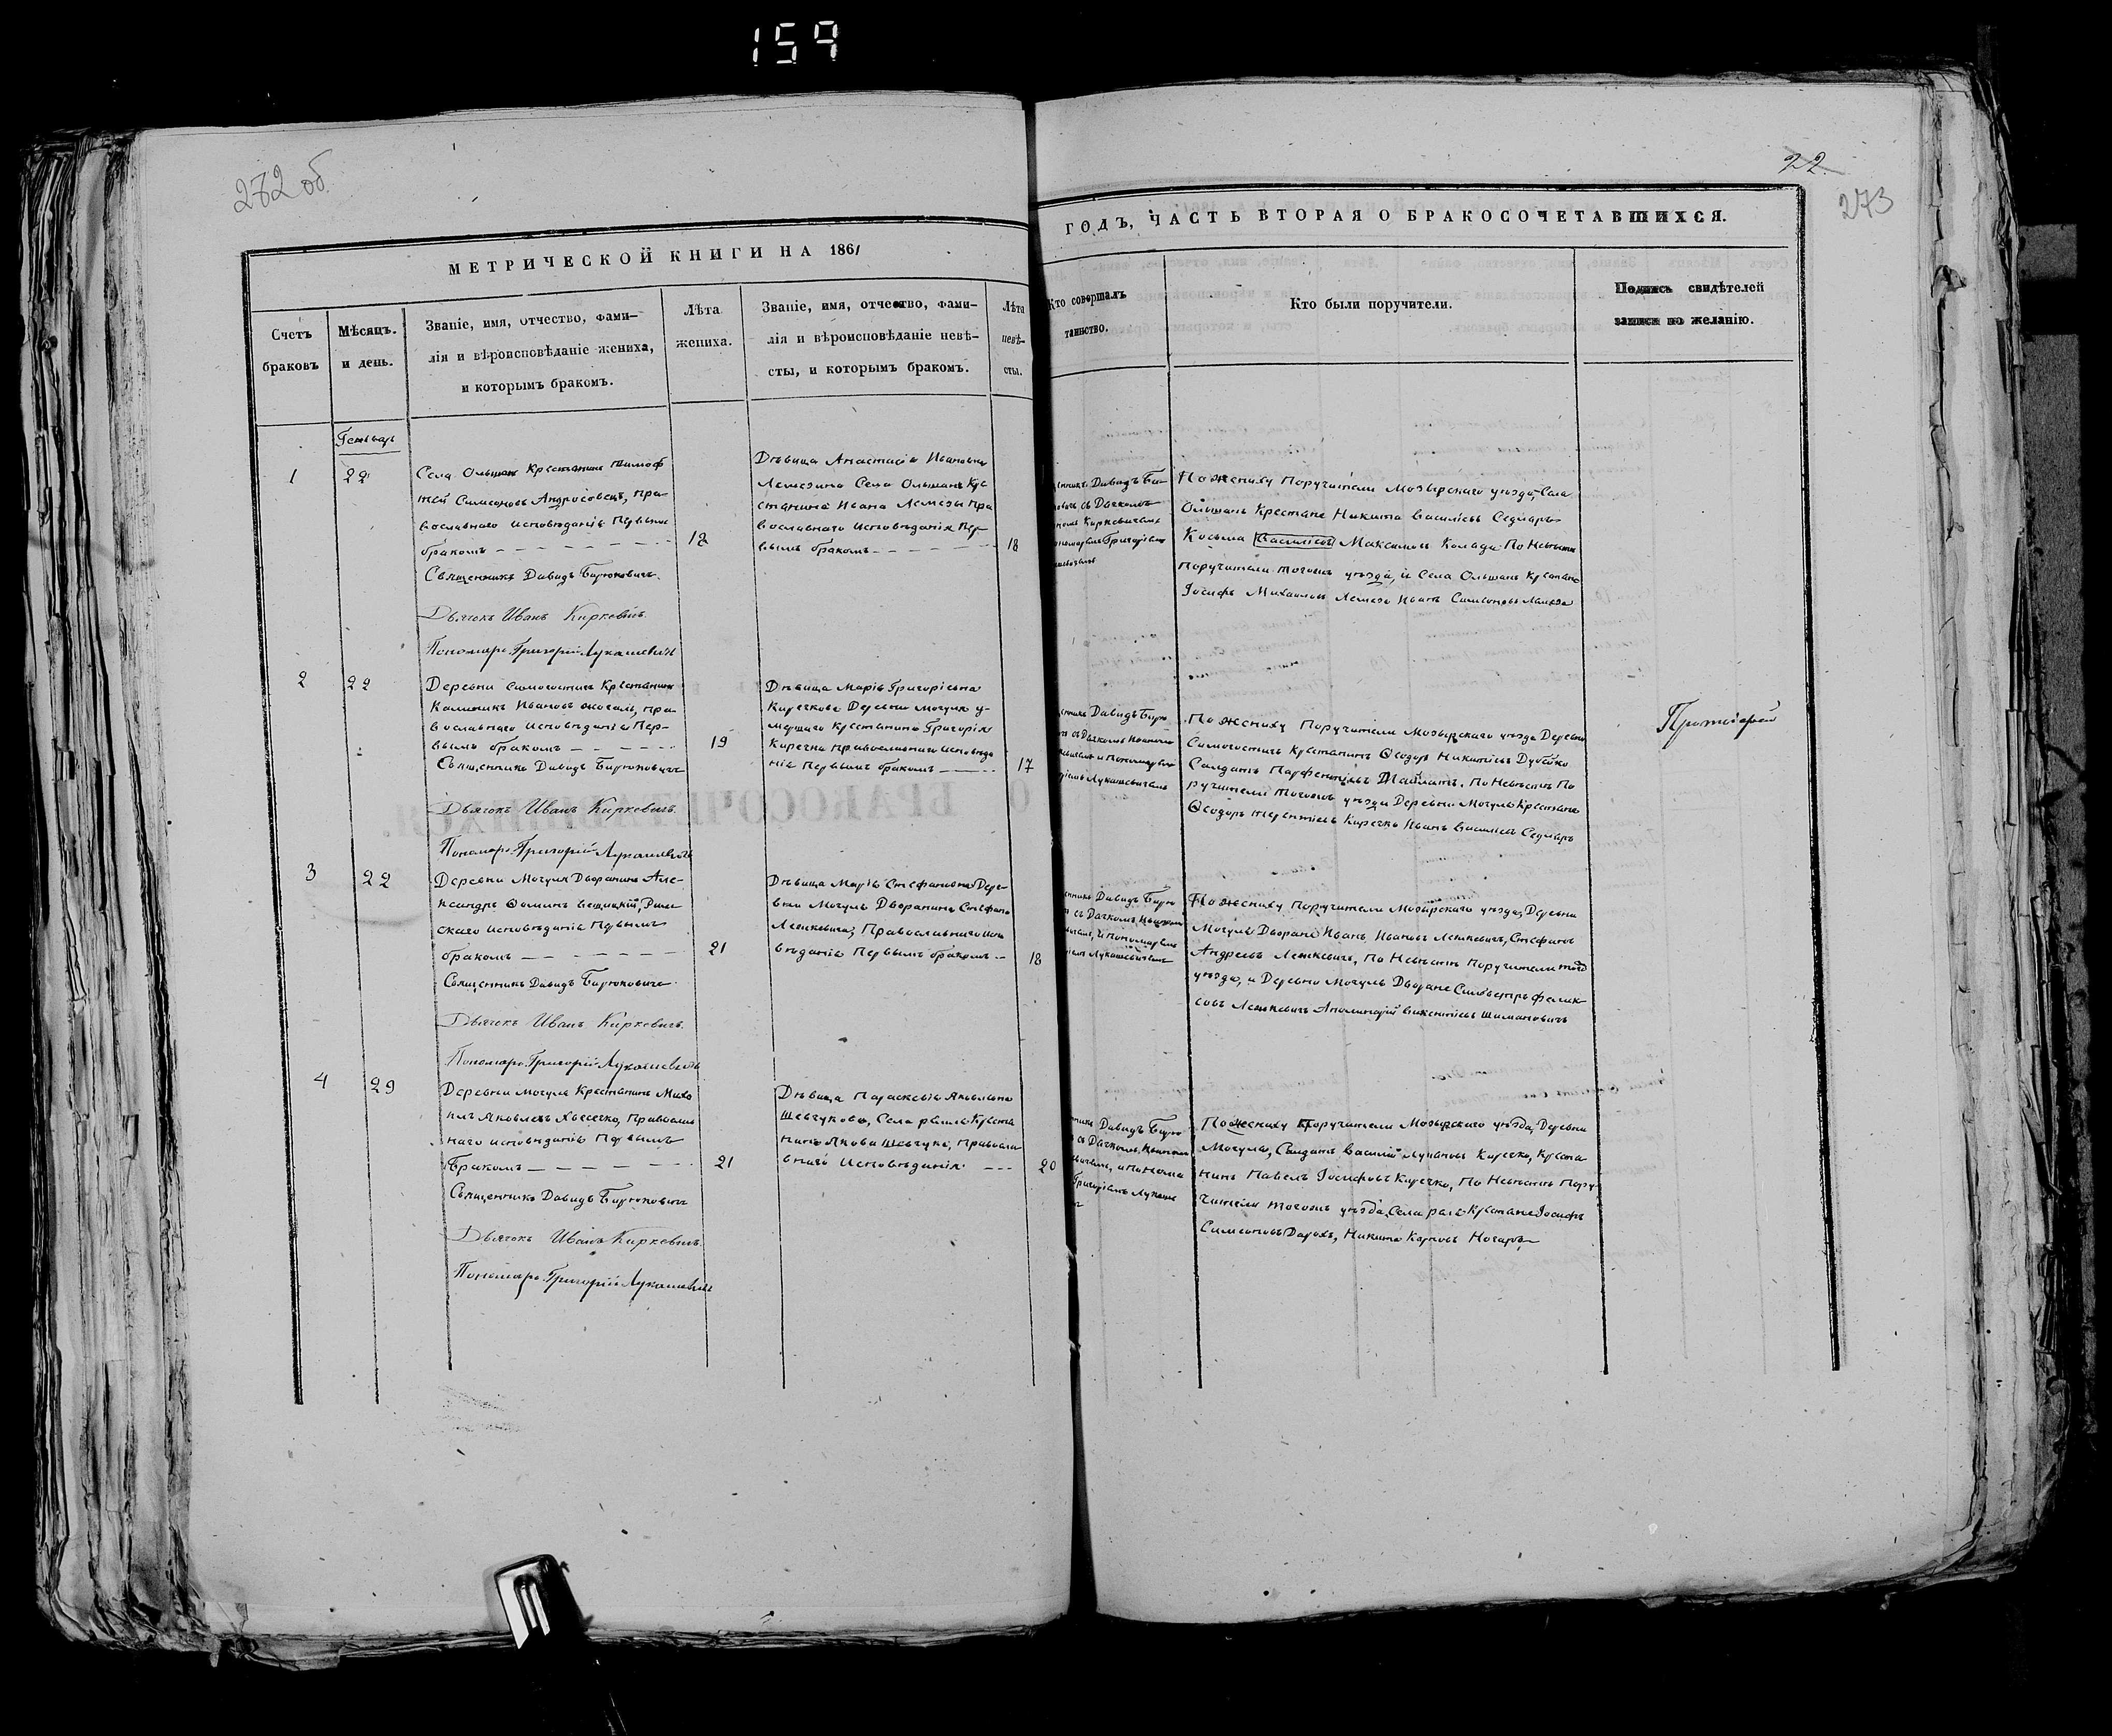 159
272 об.
22
273
МЕТРИЧЕСКОЙ КНИГИ НА 1861
ГОДЪ, ЧАСТЬ ВТОРАЯ О БРАКОСОЧЕТАВШИХСЯ.
Счетъ
браковъ
Мѣсяцъ.
и день.
Званіе, имя, отчество, фами-
лія и вѣроисповѣданіе жениха,
и которымъ бракомъ.
Лѣта
жениха.
Званіе, имя, отчество, фами-
лія и вѣроисповѣданіе невѣ-
сты, и которымъ бракомъ.
Лѣта
невѣ-
сты.
Кто совершалъ
таинство.
Кто были поручители.
Подпись свидѣтелей
записи по желанію.
Генварь
1
22
Села Ольшанъ Крестьянинъ Тимоф
тей Симеоновъ Андросовецъ, пра-
вославнаго исповѣданія Первымъ
бракомъ
18
Священникъ Давидъ Бирюковичъ.
Дьячокъ Иванъ Киркевичъ.
Пономарь Григорій Лукашевичъ
Дѣвица Анастасія Ивановна
Лемезина Села Ольшанъ Кре
стьянина Ивана Лемезы пра
вославнаго Исповѣданія Пер-
вымъ бракомъ
18
Давидъ Би-
съ Дьячкомъ
Киркевичемъ
Григоріемъ
По жениху Поручители Мозырскаго уѣзда, Села
Ольшанъ Крестьяне Никита Василіевъ Седляръ
Косьма Василіевъ Максимовъ Кольада По Невѣстѣ
поручители тогожъ уѣзда, и Села Ольшанъ Крестьяне
Іосифъ Михаиловъ Лемеза Иванъ Симеоновъ Лемеза
2
22
Деревни Симогостичъ Крестьянинъ
Калиникъ Ивановъ, пра-
вославнаго исповѣданія Пер-
вымъ бракомъ
19
Священникъ Давидъ Бирюковичъ
Дьячокъ Иванъ Киркевичъ.
Пономарь Григорій Лукашевичъ
Дѣвица Марія Григоріевна
Киречкова Деревни Мочуля у-
мершаго Крестьянина Григорія
Киречка православнаго исповѣда
нія Первымъ бракомъ
17
Давидъ Бирю
съ Дьячкомъ Иваномъ
и Пономаремъ
Лукашевичемъ
По жениху Поручители Мозырскаго уѣзда Деревни
Симогостичъ Крестьянинъ Ѳеодоръ Никитіевъ Дубейко
Салдатъ Парфентіевъ. По Невѣстѣ По
ручители тогожъ уѣзда Деревни Мочуль Крестьяне
Ѳеодоръ Терентіевъ Киречко Иванъ Василіевъ Седляръ
Протиіерей
3
22
Деревни Мочуля Дворянинъ Але-
ксандръ Ѳоминъ Вещицкій, Рим
скаго исповѣданія Первымъ
бракомъ
21
Священникъ Давидъ Бирюковичъ
Дьячокъ Иванъ Киркевичъ.
Пономарь Григорій Лукашевичъ
Дѣвица Марія Стефановна Дере-
вни Мочуль Дворянина Стефана
Ленкевича, Православнаго испо
вѣданія Первымъ бракомъ
18
Давидъ Бирю
съ Дьячкомъ Иваномъ
и Пономаремъ
Лукашевичемъ
По жениху Поручители Мозырскаго уѣзда, Деревни
Мочуль Дворяне Иванъ Ивановъ Ленкевичъ, Стефанъ
Андреевъ Ленкевичъ, По Невѣстѣ Поручители того
уѣзда, и Деревни Мочуль Дворяне Сильвестръ Фелик
совъ Ленкевичъ Аполинарій Викентіевъ Шимановичъ
4
29
Деревни Мочуля Крестьянинъ Миха
илъ Яковлевъ, Православ
наго исповѣданія Первымъ
Бракомъ
21
Священникъ Давидъ Бирюковичъ
Дьячокъ Иванъ Киркевичъ.
Пономарь Григорій Лукашевичъ
Дѣвица Параскевія Яковлевна
Шевчукова, Села Кресть
нина Якова Шевчука, Правосла
внаго Исповѣданія
20
Давидъ Бирю
съ Дьячкомъ Иваномъ
и Понома
Григоріемъ Лукаше
По жениху Поручители Мозырскаго уѣзда, Деревни
Мочуля, Салдатъ Василій Лукановъ Киречко, Крестья
нинъ Павелъ Іосифовъ Киречко, По Невѣстѣ Пору-
чители тогожъ уѣзда, Села Крестьяне Іосифъ
Симеоновъ, Никита Карповъ